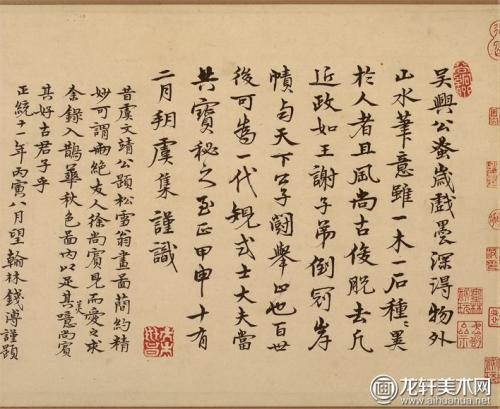 吳興公蚤歲戲墨深得物外
山水筆意雖一木一石種〻異
於人者且風尚古俊脫去凡
近政如王謝子弟倒冠岸
幘与天下公子鬪舉止也百世
後可為一代規式士大夫當
共寶秘之至正甲申十有
二月朔虞集謹識
昔虞文靖公題松雪翁畫面簡約精
妙可謂兩絕友人徐尚賓見而愛之求
余錄入鵲華秋色圖內以足其美噫尚賓
其好古君子乎
正統十一年丙寅八月望翰林錢溥謹題
龙轩美术网
www.aihuahua.net